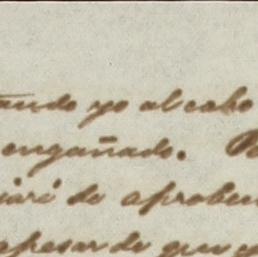 ando yo al cabo
engañado.
iaré de aprobe
apesar de que y